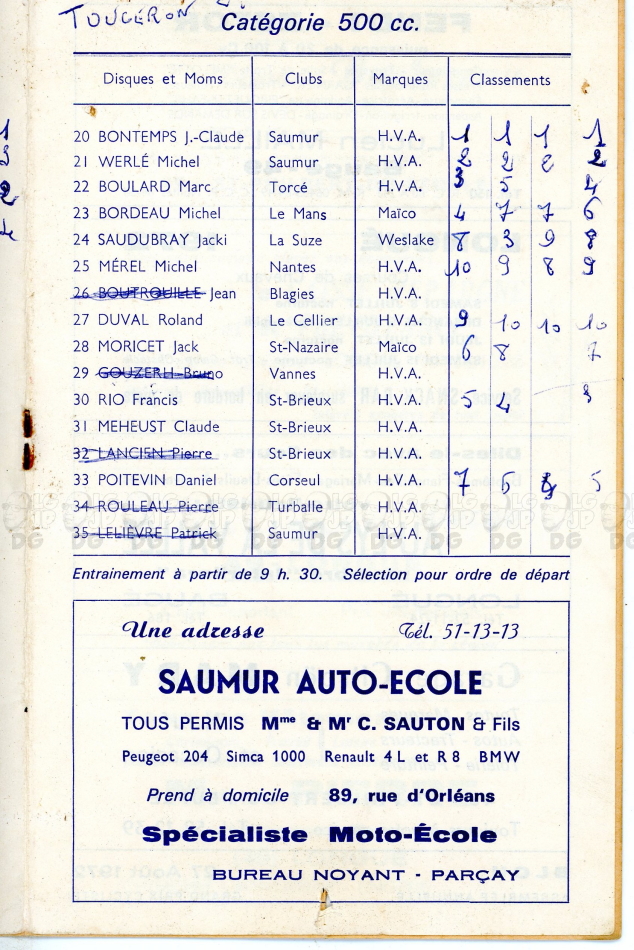 TOUGERON
Catégorie 500 cc.
Disques et Moms Clubs Marques Classements
20 BONTEMPS J.-Claude Saumur H.V.A. 1 1 1 1
21 WERLÉ Michel Saumur H.V.A. 2 2 2 2
22 BOULARD Marc Torcé H.V.A. 3 5 4
23 BORDEAU Michel Le Mans Maïco 4 7 7 6
24 SAUDUBRAY Jacki La Suze Weslake 8 3 9 8
25 MÉREL Michel Nantes H.V.A. 10 9 8 9
26 BOUTROUILLE Jean Blagies H.V.A.
27 DUVAL Roland Le Cellier H.V.A. 9 10 10 10
28 MORICET Jack St-Nazaire Maïco 6 8 7
29 GOUZERH Bruno Vannes H.V.A.
30 RIO Francis St-Brieux H.V.A. 5 4 3
31 MEHEUST Claude St-Brieux H.V.A.
32 LANCIEN Pierre St-Brieux H.V.A.
33 POITEVIN Daniel Corseul H.V.A. 7 6 5
34 ROULEAU Pierre Turballe H.V.A.
35 LELIÈVRE Patrick Saumur H.V.A.
Entrainement à partir de 9 h. 30. Sélection pour ordre de départ
Une adresse Tél. 51-13-13
SAUMUR AUTO-ECOLE
TOUS PERMIS Mme & Mr C. SAUTON & Fils
Peugeot 204 Simca 1000 Renault 4 L et R 8 BMW
Prend à domicile 89, rue d'Orléans
Spécialiste Moto-École
BUREAU NOYANT - PARÇAY